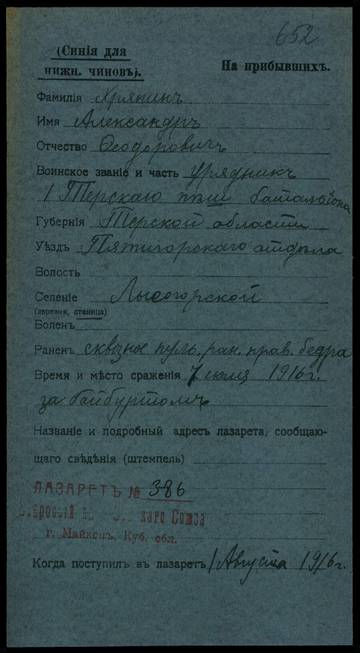 652
(Синія для
нижн. чиновъ).
На прибывшихъ.
Фамилія Хрянинъ
Имя Александръ
Отчество Ѳеодоровичъ
Воинское званіе и часть урядникъ
1 Терскаго пѣш баталіона
Губернія Терской области
Уѣздъ Пятигорскаго отдѣла
Волость
Селеніе Лысогорской
(деревня, станица)
Боленъ
Раненъ сквозное пуль. ран. прав. бедра
Время и мѣсто сраженія 7 июля 1916 г.
за Байбуртомъ
Названіе и подробный адресъ лазарета, сообщаю-
щаго свѣдѣнія (штемпель)
ЛАЗАРЕТЪ № 386
Союза
г. Майкопъ, Куб. обл.
Когда поступилъ въ лазаретъ 1 Августа 1916 г.